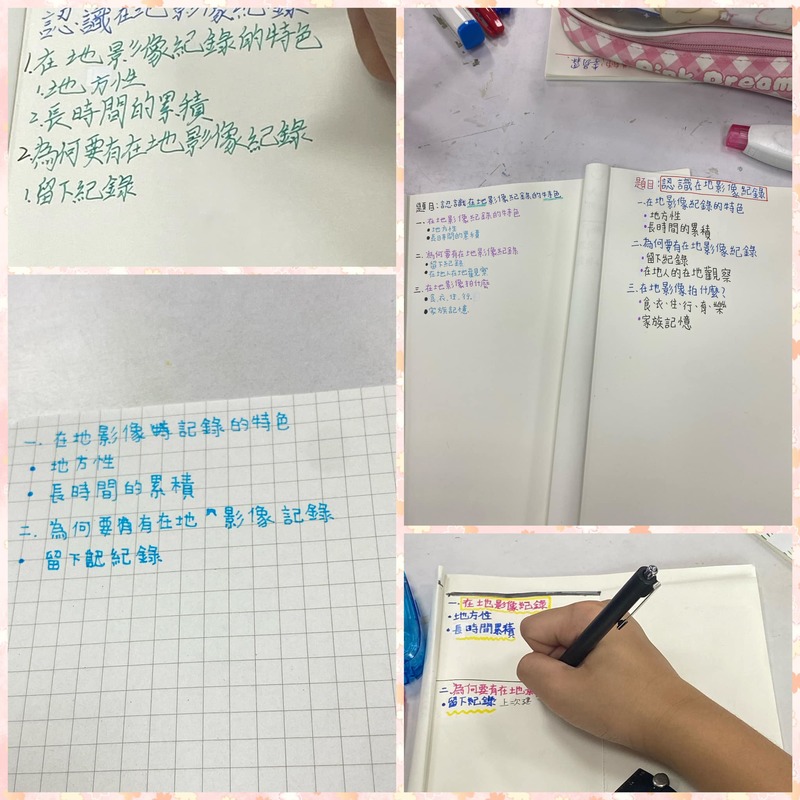 認識在地影像紀錄
1.在地影像紀錄的特色
1.地方性
2.長時間的累積
2.為何要有在地影像紀錄
1.留下紀錄
一.在地影像時記錄的特色
•地方性
•長時間的累積
二.為何要有有在地影像記錄
•留下紀錄
Pink Dream
題目:認識在地影像紀錄的特色
一.在地影像紀錄的特色
•地方性
•長時間的累積
二.為何要有在地影像紀錄
•留下紀錄
•在地人在地觀察
三.在地影像拍什麼
•食.衣.住.行.
•家族記憶
題目:認識在地影像紀錄
一.在地影像紀錄的特色
•地方性
•長時間的累積
二.為何要有在地影像紀錄
•留下紀錄
•在地人的在地觀察
三.在地影像拍什麼?
•食、衣、住、行、育、樂
•家族記憶
一.在地影像紀錄
•地方性
•長時間累積
二.為何要有在地
•留下紀錄 上次課